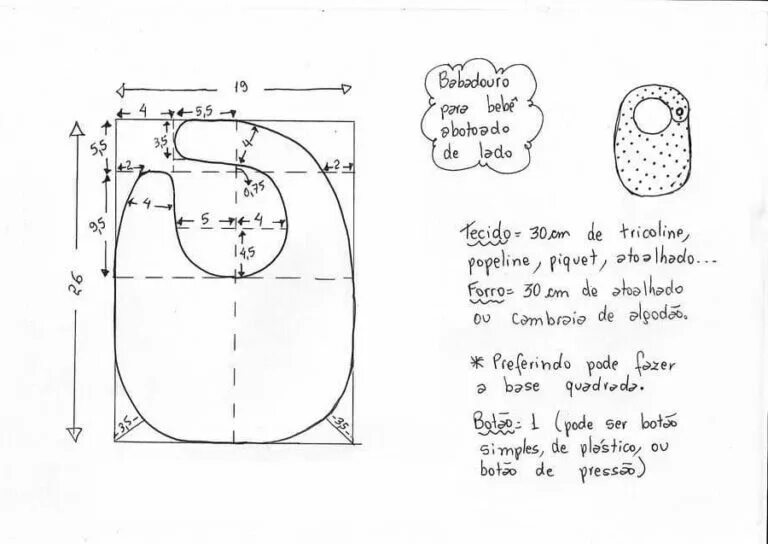 19
4 5,5
Babadouro
para bebê
abotoado
de lado
5,5
3,5
4
2
2
0,75
4
9,5
5 4
4,5
26
3,5
3,5
Tecido = 30 cm de tricoline,
popeline, piquet, atoalhado...
Forro = 30 cm de atoalhado
ou cambraia de algodão.
* Preferindo pode fazer
a base quadrada.
Botão = 1 (pode ser botão
simples, de plástico, ou
botão de pressão)